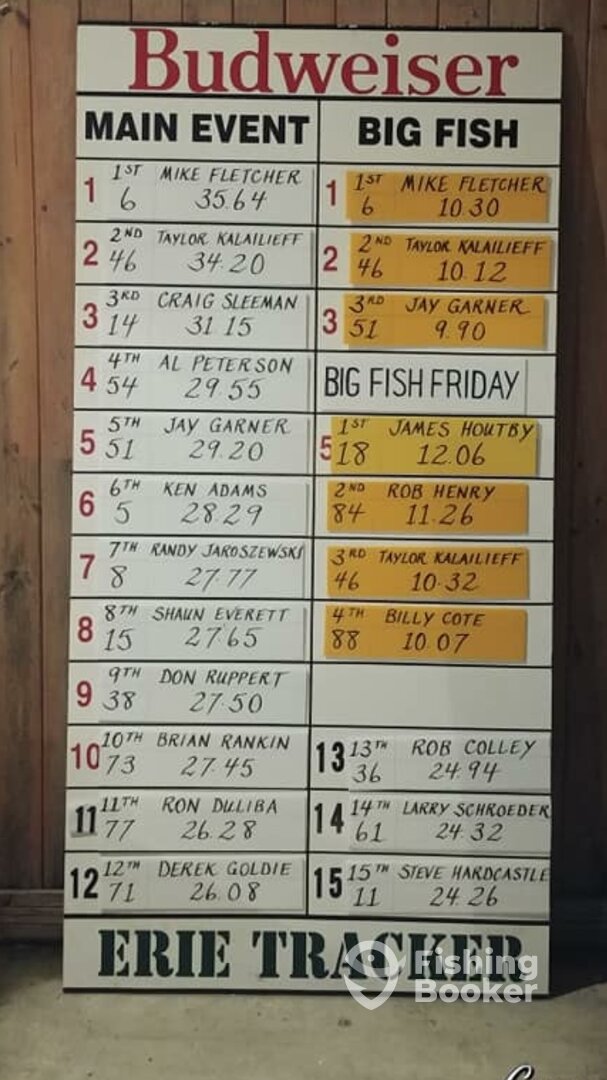 Budweiser
MAIN EVENT
1 1ST MIKE FLETCHER
6 35.64
2 2ND TAYLOR KALAILIEFF
46 34.20
3 3RD CRAIG SLEEMAN
14 31 15
4 4TH AL PETERSON
54 29.55
5 5TH JAY GARNER
51 29.20
6 6TH KEN ADAMS
5 28.29
7 7TH RANDY JAROSZEWSKI
8 27.77
8 8TH SHAUN EVERETT
15 27.65
9 9TH DON RUPPERT
38 27.50
10 10TH BRIAN RANKIN
73 27.45
11 11TH RON DULIBA
77 26.28
12 12TH DEREK GOLDIE
71 26.08
BIG FISH
1 1ST MIKE FLETCHER
6 10.30
2 2ND TAYLOR KALAILIEFF
46 10.12
3 3RD JAY GARNER
51 9.90
BIG FISH FRIDAY
5 1ST JAMES HOUTBY
18 12.06
2ND ROB HENRY
84 11.26
3RD TAYLOR KALAILIEFF
46 10.32
4TH BILLY COTE
88 10.07
13 13TH ROB COLLEY
36 24.94
14 14TH LARRY SCHROEDER
61 24.32
15 15TH STEVE HARDCASTLE
11 24.26
ERIE TRACKER
Fishing
Booker